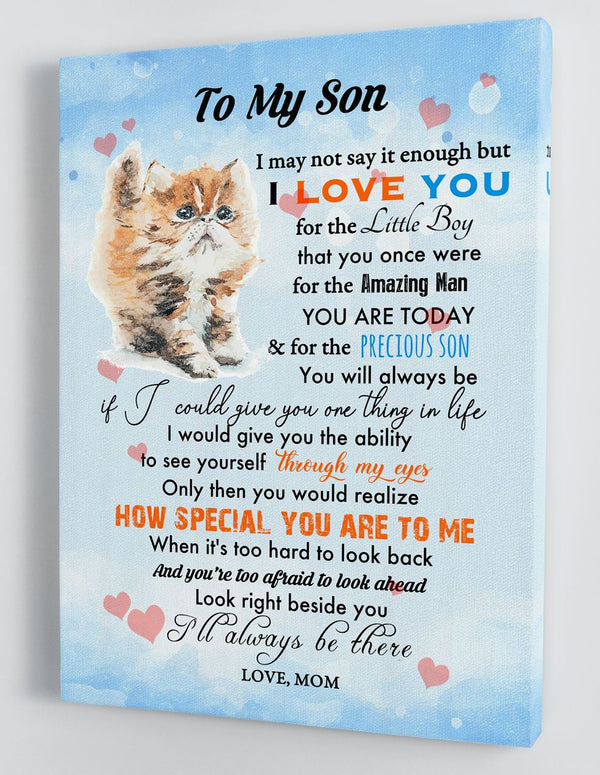 To My Son
I may not say it enough but
I LOVE YOU
for the Little Boy
that you once were
for the Amazing Man
YOU ARE TODAY
& for the PRECIOUS SON
You will always be
if I could give you one thing in life
I would give you the ability
to see yourself through my eyes
Only then you would realize
HOW SPECIAL YOU ARE TO ME
When it's too hard to look back
And you're too afraid to look ahead
Look right beside you
I'll always be there
LOVE, MOM